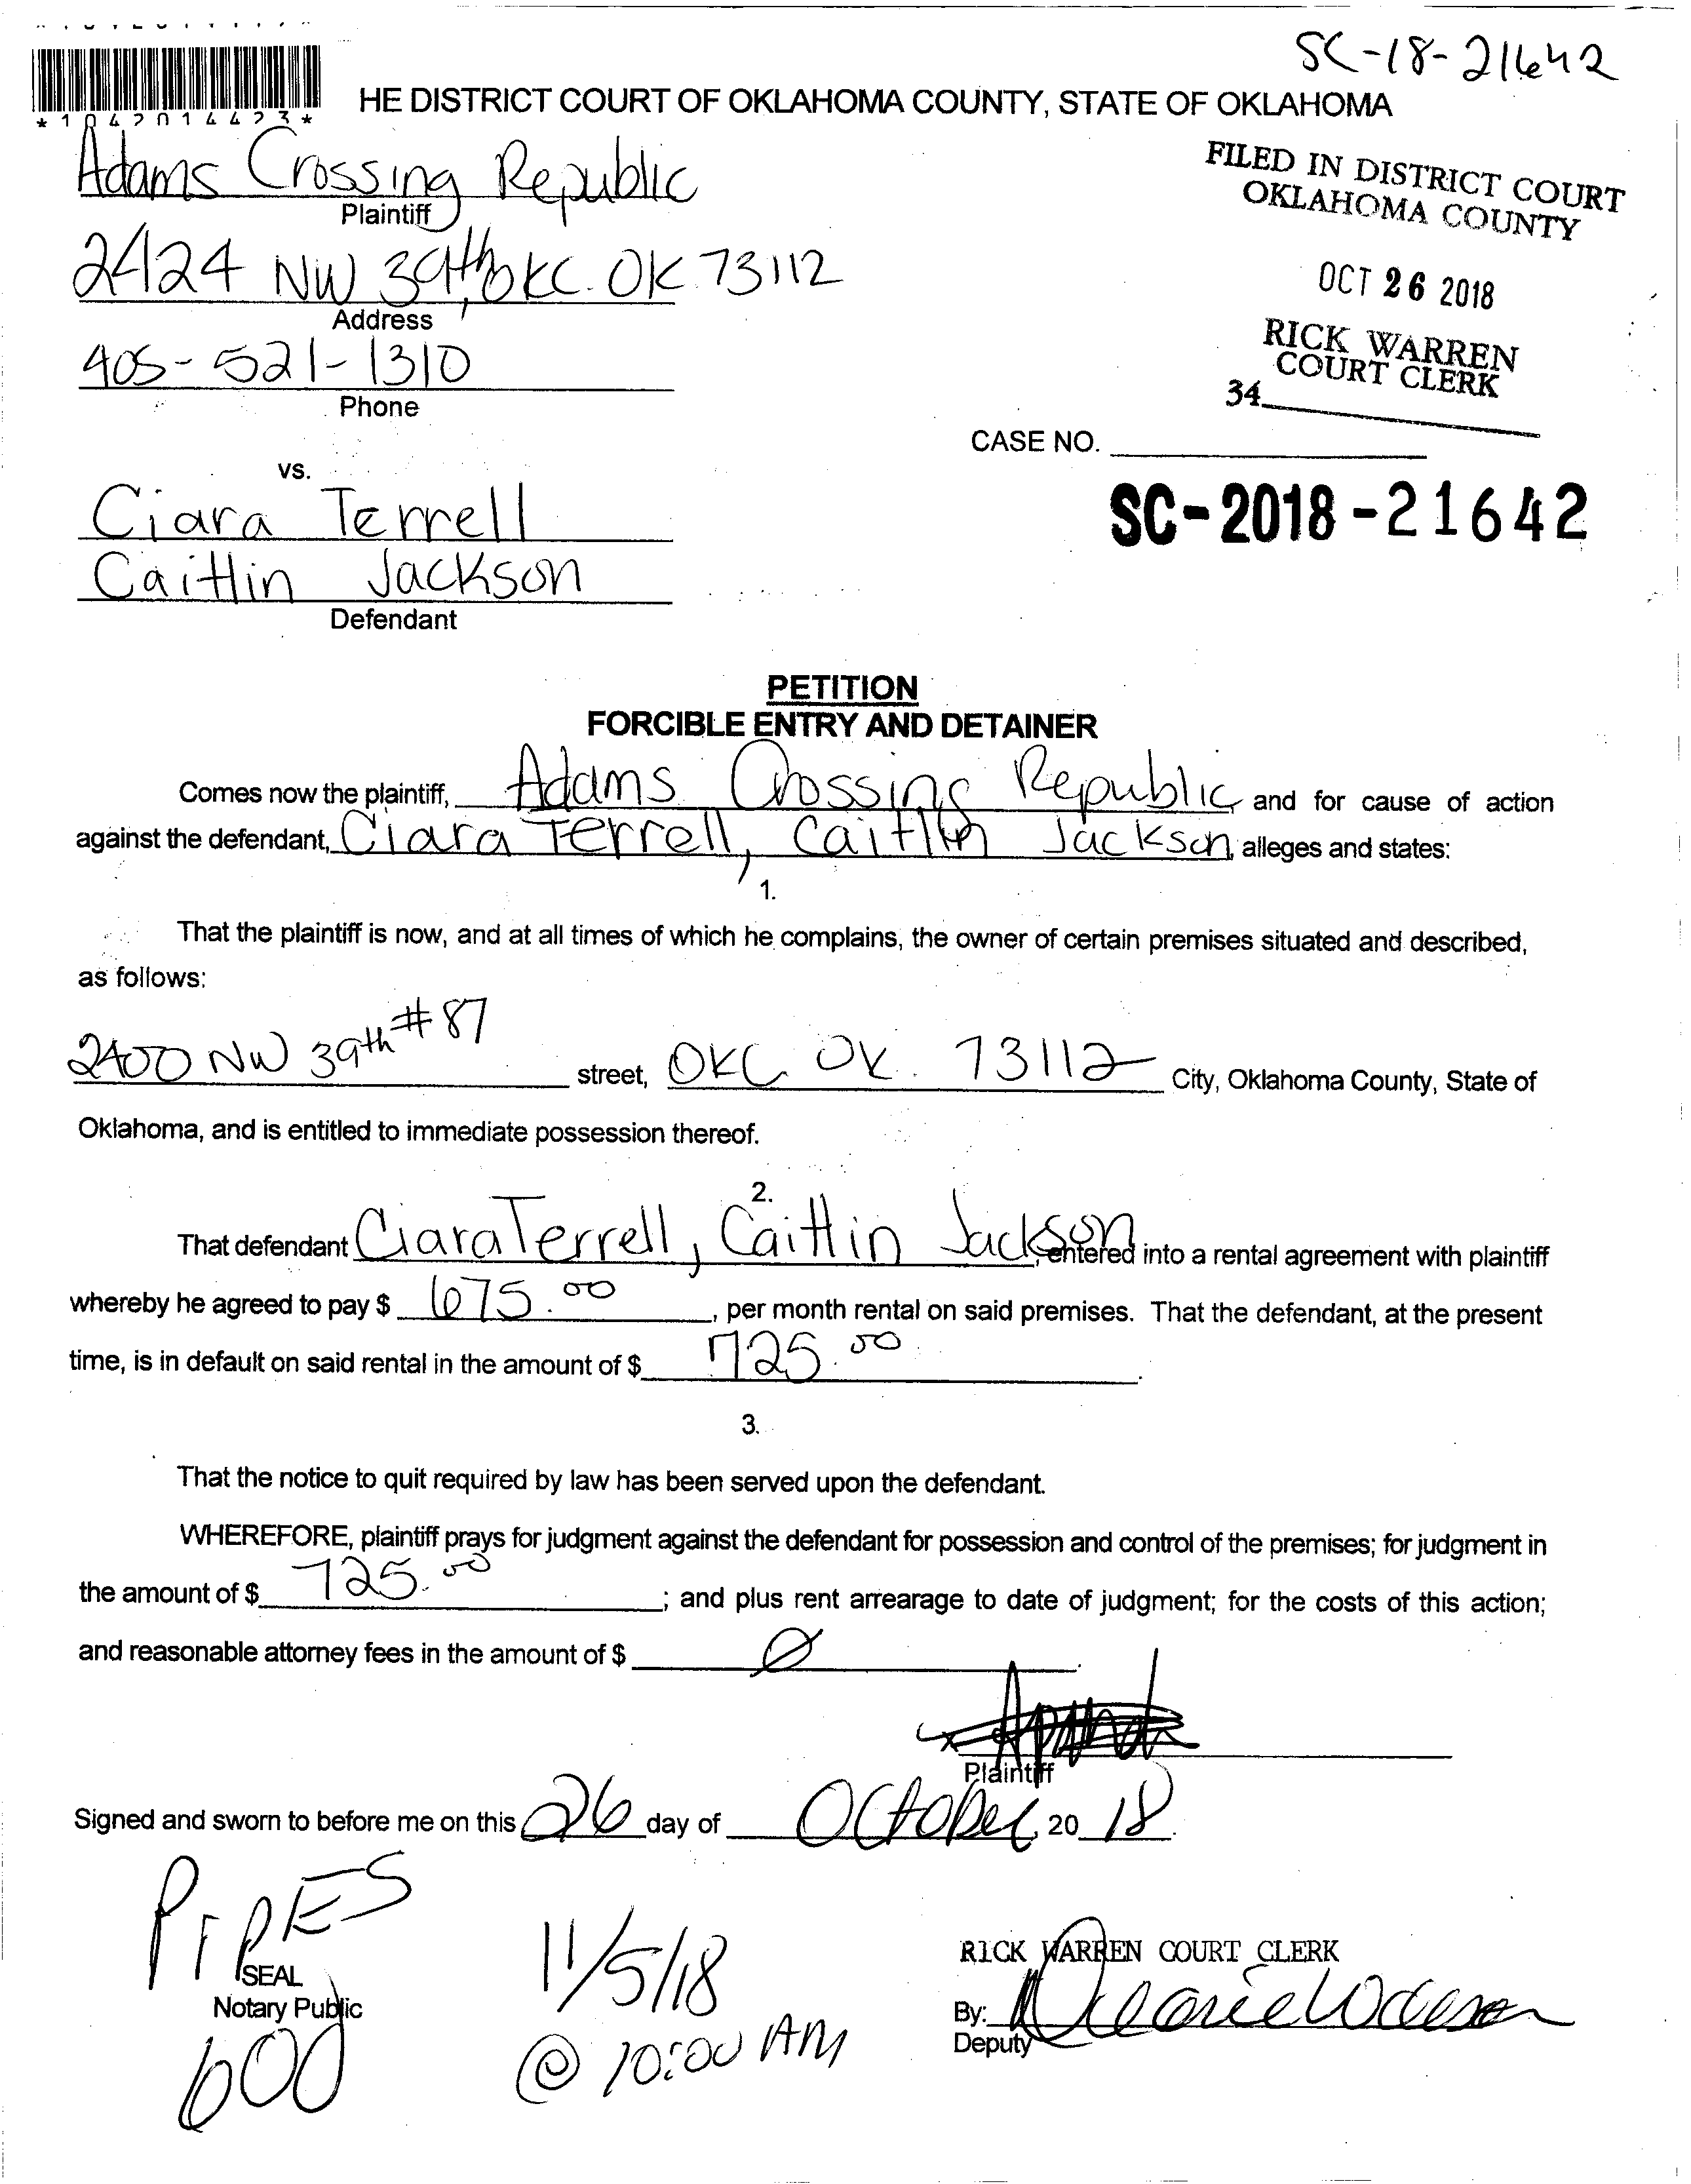 SC-18-21642
*1042014423*
HE DISTRICT COURT OF OKLAHOMA COUNTY, STATE OF OKLAHOMA
Adams Crossing Republic
Plaintiff
2424 NW 39th, OKC. OK 73112
Address
405-521-1310
Phone
FILED IN DISTRICT COURT
OKLAHOMA COUNTY
OCT 26 2018
RICK WARREN
COURT CLERK
34
CASE NO.
SC-2018-21642
vs.
Ciara Terrell
Caitlin Jackson
Defendant
PETITION
FORCIBLE ENTRY AND DETAINER
Comes now the plaintiff, Adams Crossing Republic, and for cause of action
against the defendant, Ciara Terrell, Caitlin Jackson, alleges and states:
1.
That the plaintiff is now, and at all times of which he complains, the owner of certain premises situated and described,
as follows:
2400 NW 39th #87 street, OKC OK. 73112 City, Oklahoma County, State of
Oklahoma, and is entitled to immediate possession thereof.
2.
That defendant Ciara Terrell, Caitlin Jackson, entered into a rental agreement with plaintiff
whereby he agreed to pay $ 675.00, per month rental on said premises. That the defendant, at the present
time, is in default on said rental in the amount of $ 725.00.
3.
That the notice to quit required by law has been served upon the defendant.
WHEREFORE, plaintiff prays for judgment against the defendant for possession and control of the premises; for judgment in
the amount of $ 725.00; and plus rent arrearage to date of judgment; for the costs of this action;
and reasonable attorney fees in the amount of $ Ø.
Plaintiff
Signed and sworn to before me on this 26 day of October, 20 18.
PIPES
SEAL
Notary Public
600
11/5/18
@ 10:00 AM
RICK WARREN COURT CLERK
By:
Deputy